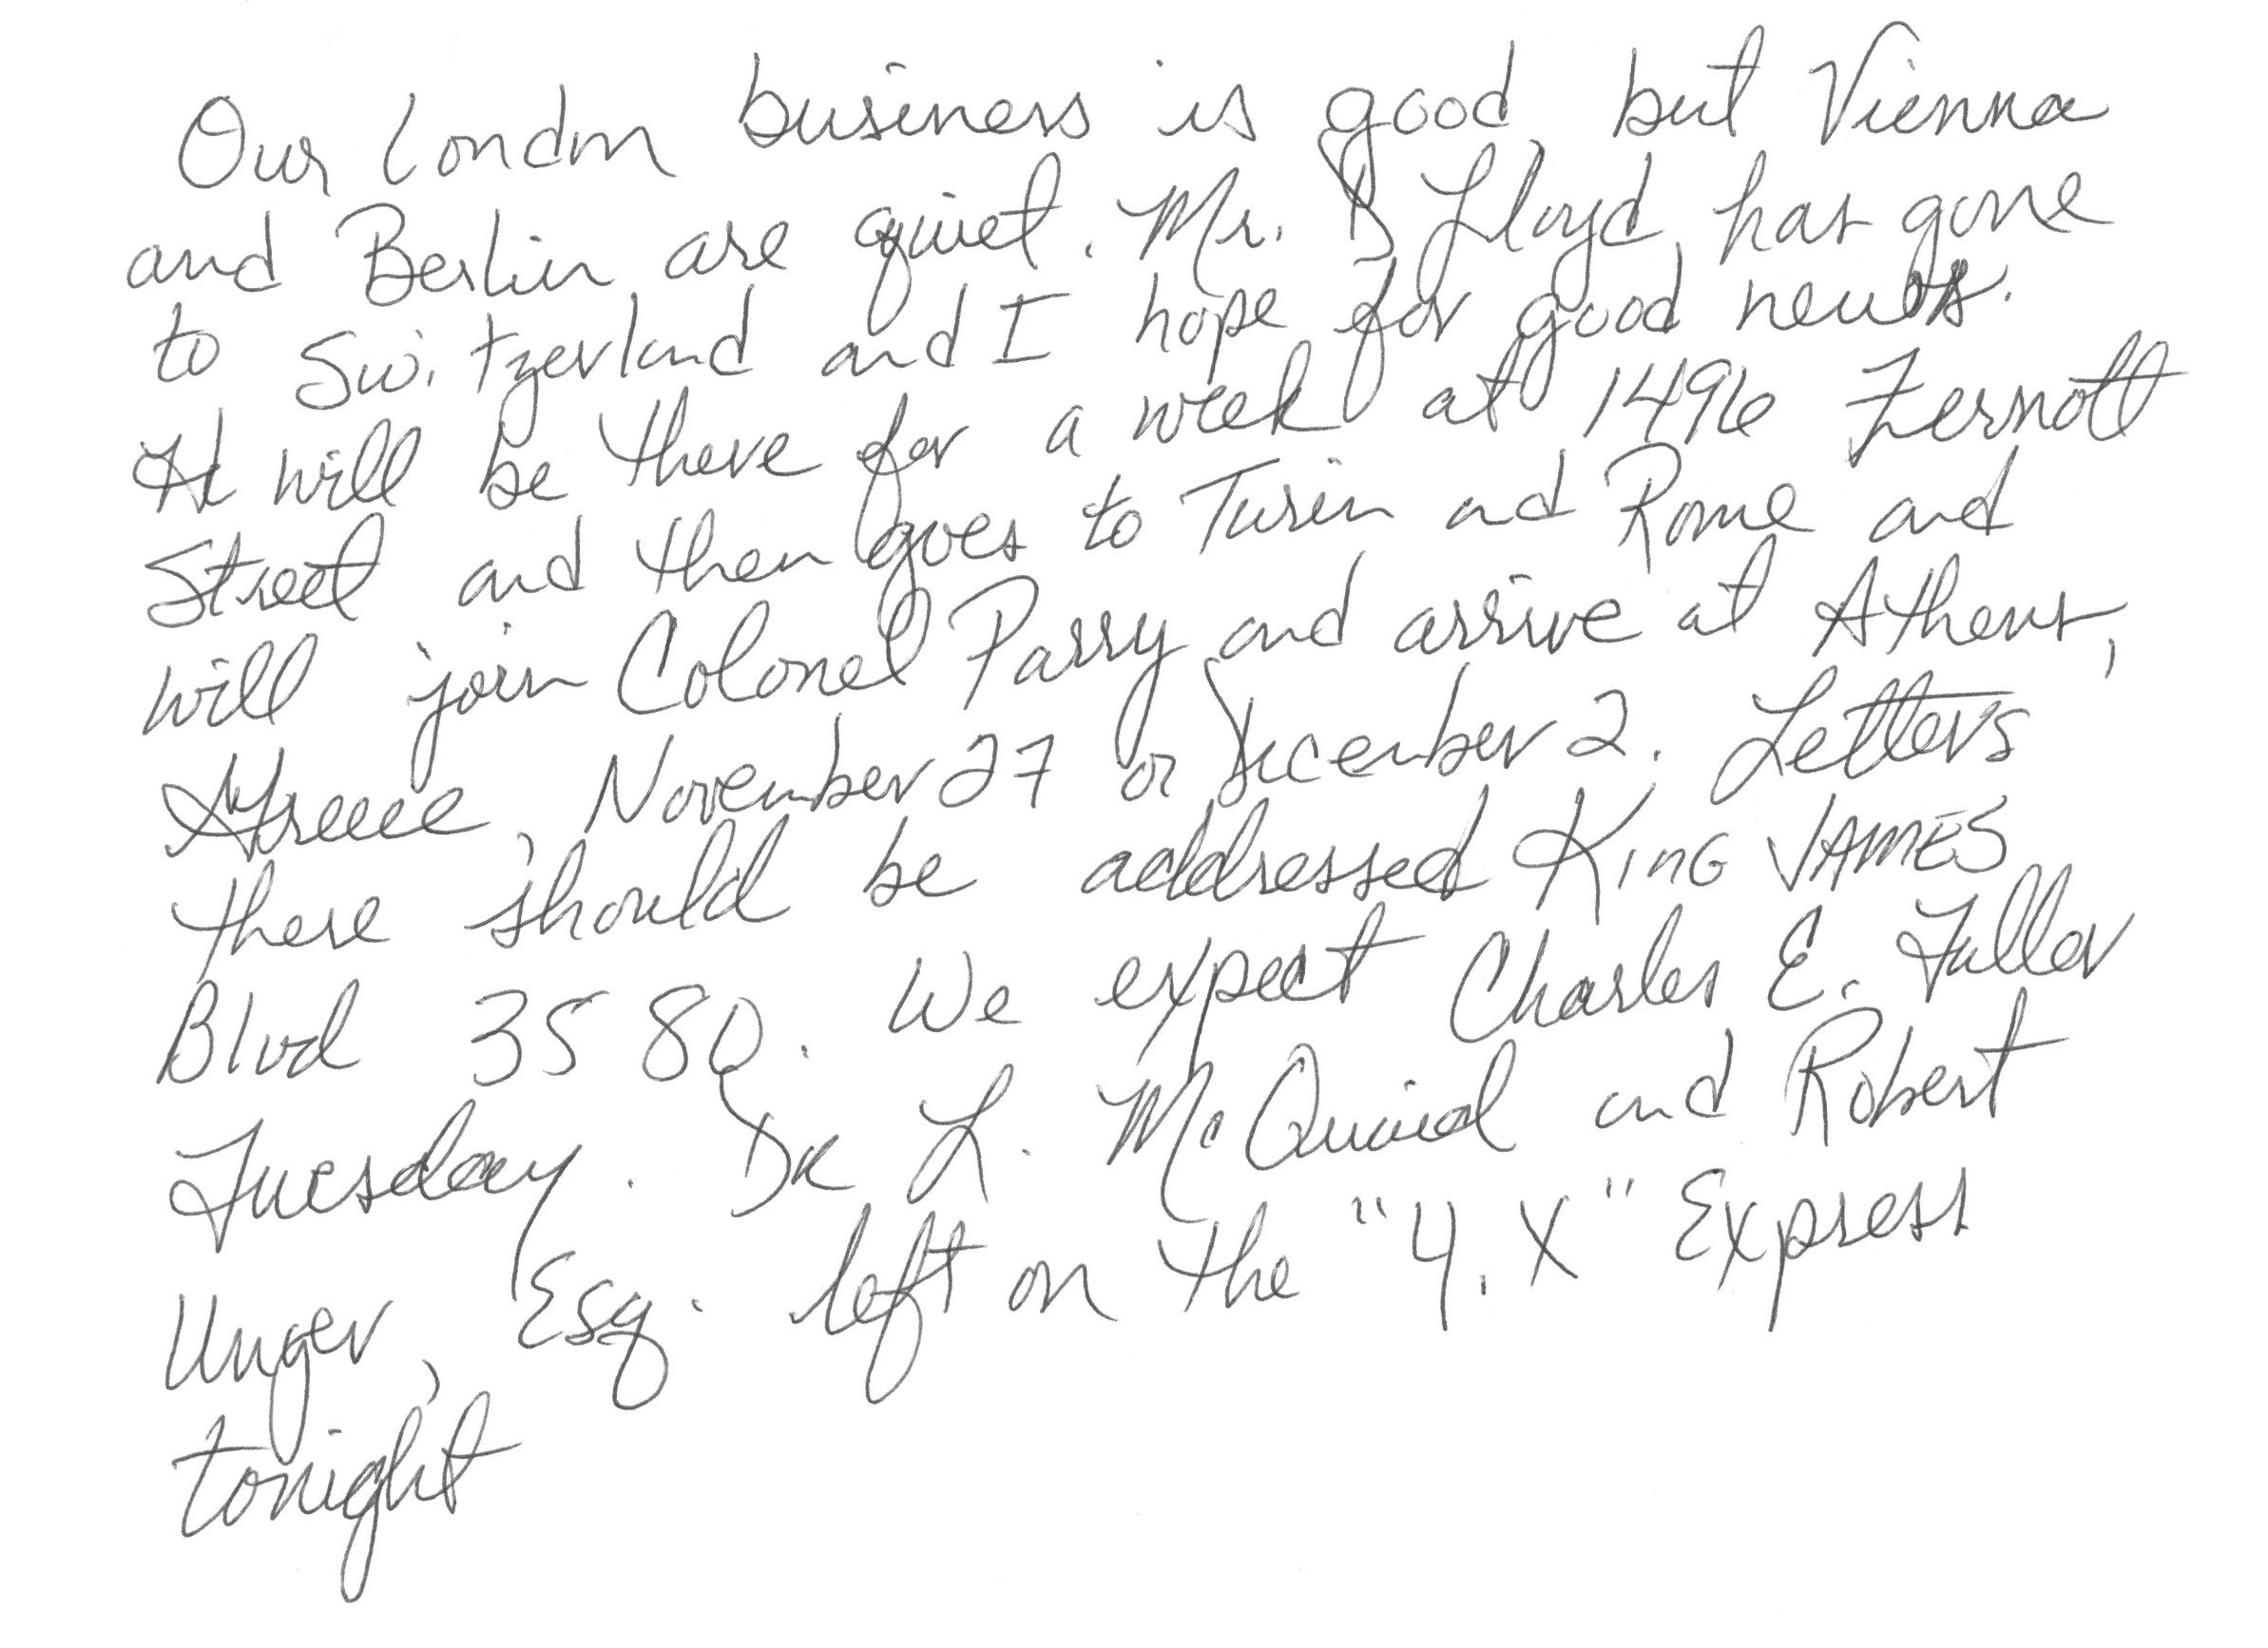 Our London business is good, but Vienna
and Berlin are quiet. Mr. D Lloyd has gone
to Switzerland and I hope for good news.
He will be there for a week at 1496 Zermott
Street and then goes to Turin and Rome and
will join Colonel Parry and arrive at Athens,
Greece, November 27 or December 2. Letters
there should be addressed KING JAMES
Blvd 3580. We expect Charles E. Fuller
Tuesday. Dr L. McQuaid and Robert
Unger, Esq. left on the "Y.X" Express
tonight